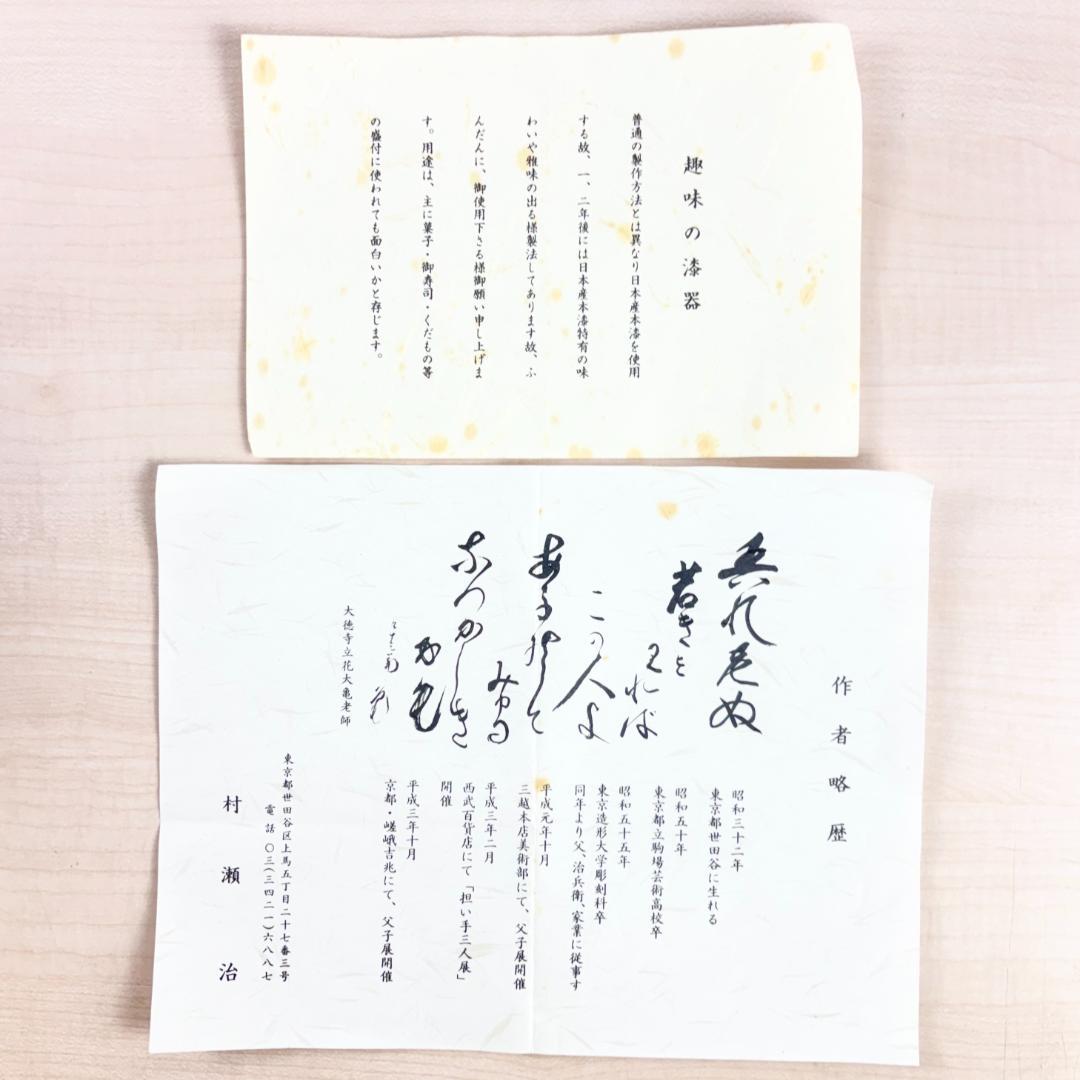 趣味の漆器
普通の製作方法とは異なり日本産本漆を使用
する故、一、二年後には日本産本漆特有の味
わいや雅味の出る様製法してあります故、ふ
んだんに、御使用下さる様御願い申し上げま
す。用途は、主に菓子・御寿司・くだもの等
の盛付に使われても面白いかと存じます。
作者略歴
若きを
みれば
この人よ
大徳寺立花大亀老師
昭和三十二年
東京都世田谷に生れる
昭和五十年
東京都立駒場芸術高校卒
昭和五十五年
東京造形大学彫刻科卒
同年より父、治兵衛、家業に従事す
平成元年十月
三越本店美術部にて、父子展開催
平成三年二月
西武百貨店にて「担い手三人展」
開催
平成三年十月
京都・嵯峨吉兆にて、父子展開催
東京都世田谷区上馬五丁目二十七番三号
電話〇三(三四二一)六八八七
村瀬治